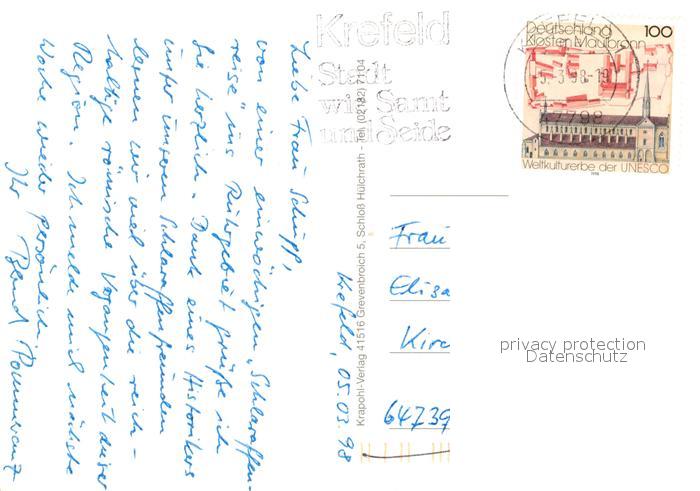 Krefeld
Stadt
wie Samt
und Seide
Deutschland 100
Kloster Maulbronn
5. 3. 98-19
47798
Weltkulturerbe der UNESCO
1998
Krefeld, 05.03.98
Liebe Frau Schipp,
von einer einwöchigen "Schlaraffen-
reise" ins Ruhrgebiet grüße ich
Sie herzlich. Dank eines Historikers
unter unseren Schlaraffenfreunden
lernen wir viel über die reich-
haltige römische Vergangenheit dieser
Region. Ich melde mich nächste
Woche wieder persönlich.
Ihr Bernd
Krapohl-Verlag 41516 Grevenbroich 5, Schloß Hülchrath - Tel. (02182) 7104
Frau
Elisa
Kirc
64739
privacy protection
Datenschutz